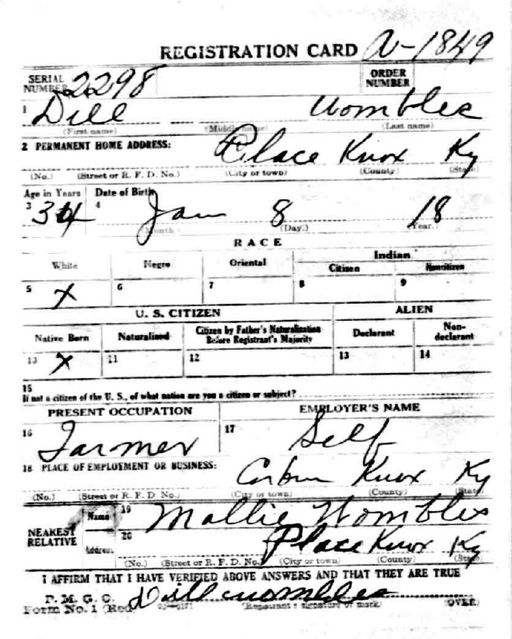 REGISTRATION CARD N-1849
SERIAL NUMBER 2298 ORDER NUMBER
1 Dill Wombles
(First name) (Middle name) (Last name)
2 PERMANENT HOME ADDRESS: Place Knox Ky
(No.) (Street or R. F. D. No.) (City or town) (County) (State)
Age in Years Date of Birth
3 34 4 Jan 8 18
(Month) (Day.) (Year.)
RACE
White Negro Oriental Indian
Citizen Noncitizen
5 X 6 7 8 9
U. S. CITIZEN ALIEN
Native Born Naturalized Citizen by Father's Naturalization Before Registrant's Majority Declarant Non-declarant
10 X 11 12 13 14
15
If not a citizen of the U. S., of what nation are you a citizen or subject?
PRESENT OCCUPATION EMPLOYER'S NAME
16 Farmer 17 Self
18 PLACE OF EMPLOYMENT OR BUSINESS: Corbin Knox Ky
(No.) (Street or R. F. D. No.) (City or town) (County) (State)
NEAREST RELATIVE Name 19 Mollie Wombles
Address 20 Place Knox Ky
(No.) (Street or R. F. D. No.) (City or town) (County) (State)
I AFFIRM THAT I HAVE VERIFIED ABOVE ANSWERS AND THAT THEY ARE TRUE
P. M. G. O.
Form No. 1 (Red) Dill wombles
(Registrant's signature or mark) (OVER)